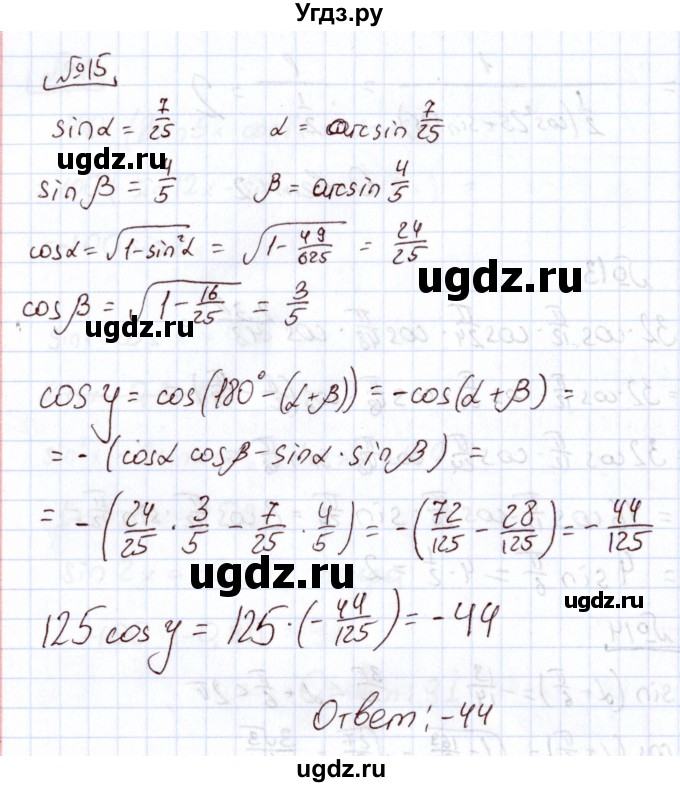 Угдз.ру
№15
sinα = 7/25   α = arcsin 7/25
ugdz.ru
sin β = 4/5   β = arcsin 4/5
cosα = √(1-sin²α) = √(1 - 49/625) = 24/25
ugdz.ru
cos β = √(1 - 16/25) = 3/5
ugdz.ru
cos y = cos(180° - (α+β)) = -cos(α+β) =
= - (cosα cosβ - sinα · sinβ) =
= -(24/25 · 3/5 - 7/25 · 4/5) = -(72/125 - 28/125) = - 44/125
ugdz.ru
ugdz.ru
125 cos y = 125 · (- 44/125) = -44
Ответ: -44
ugdz.ru
ugdz.ru